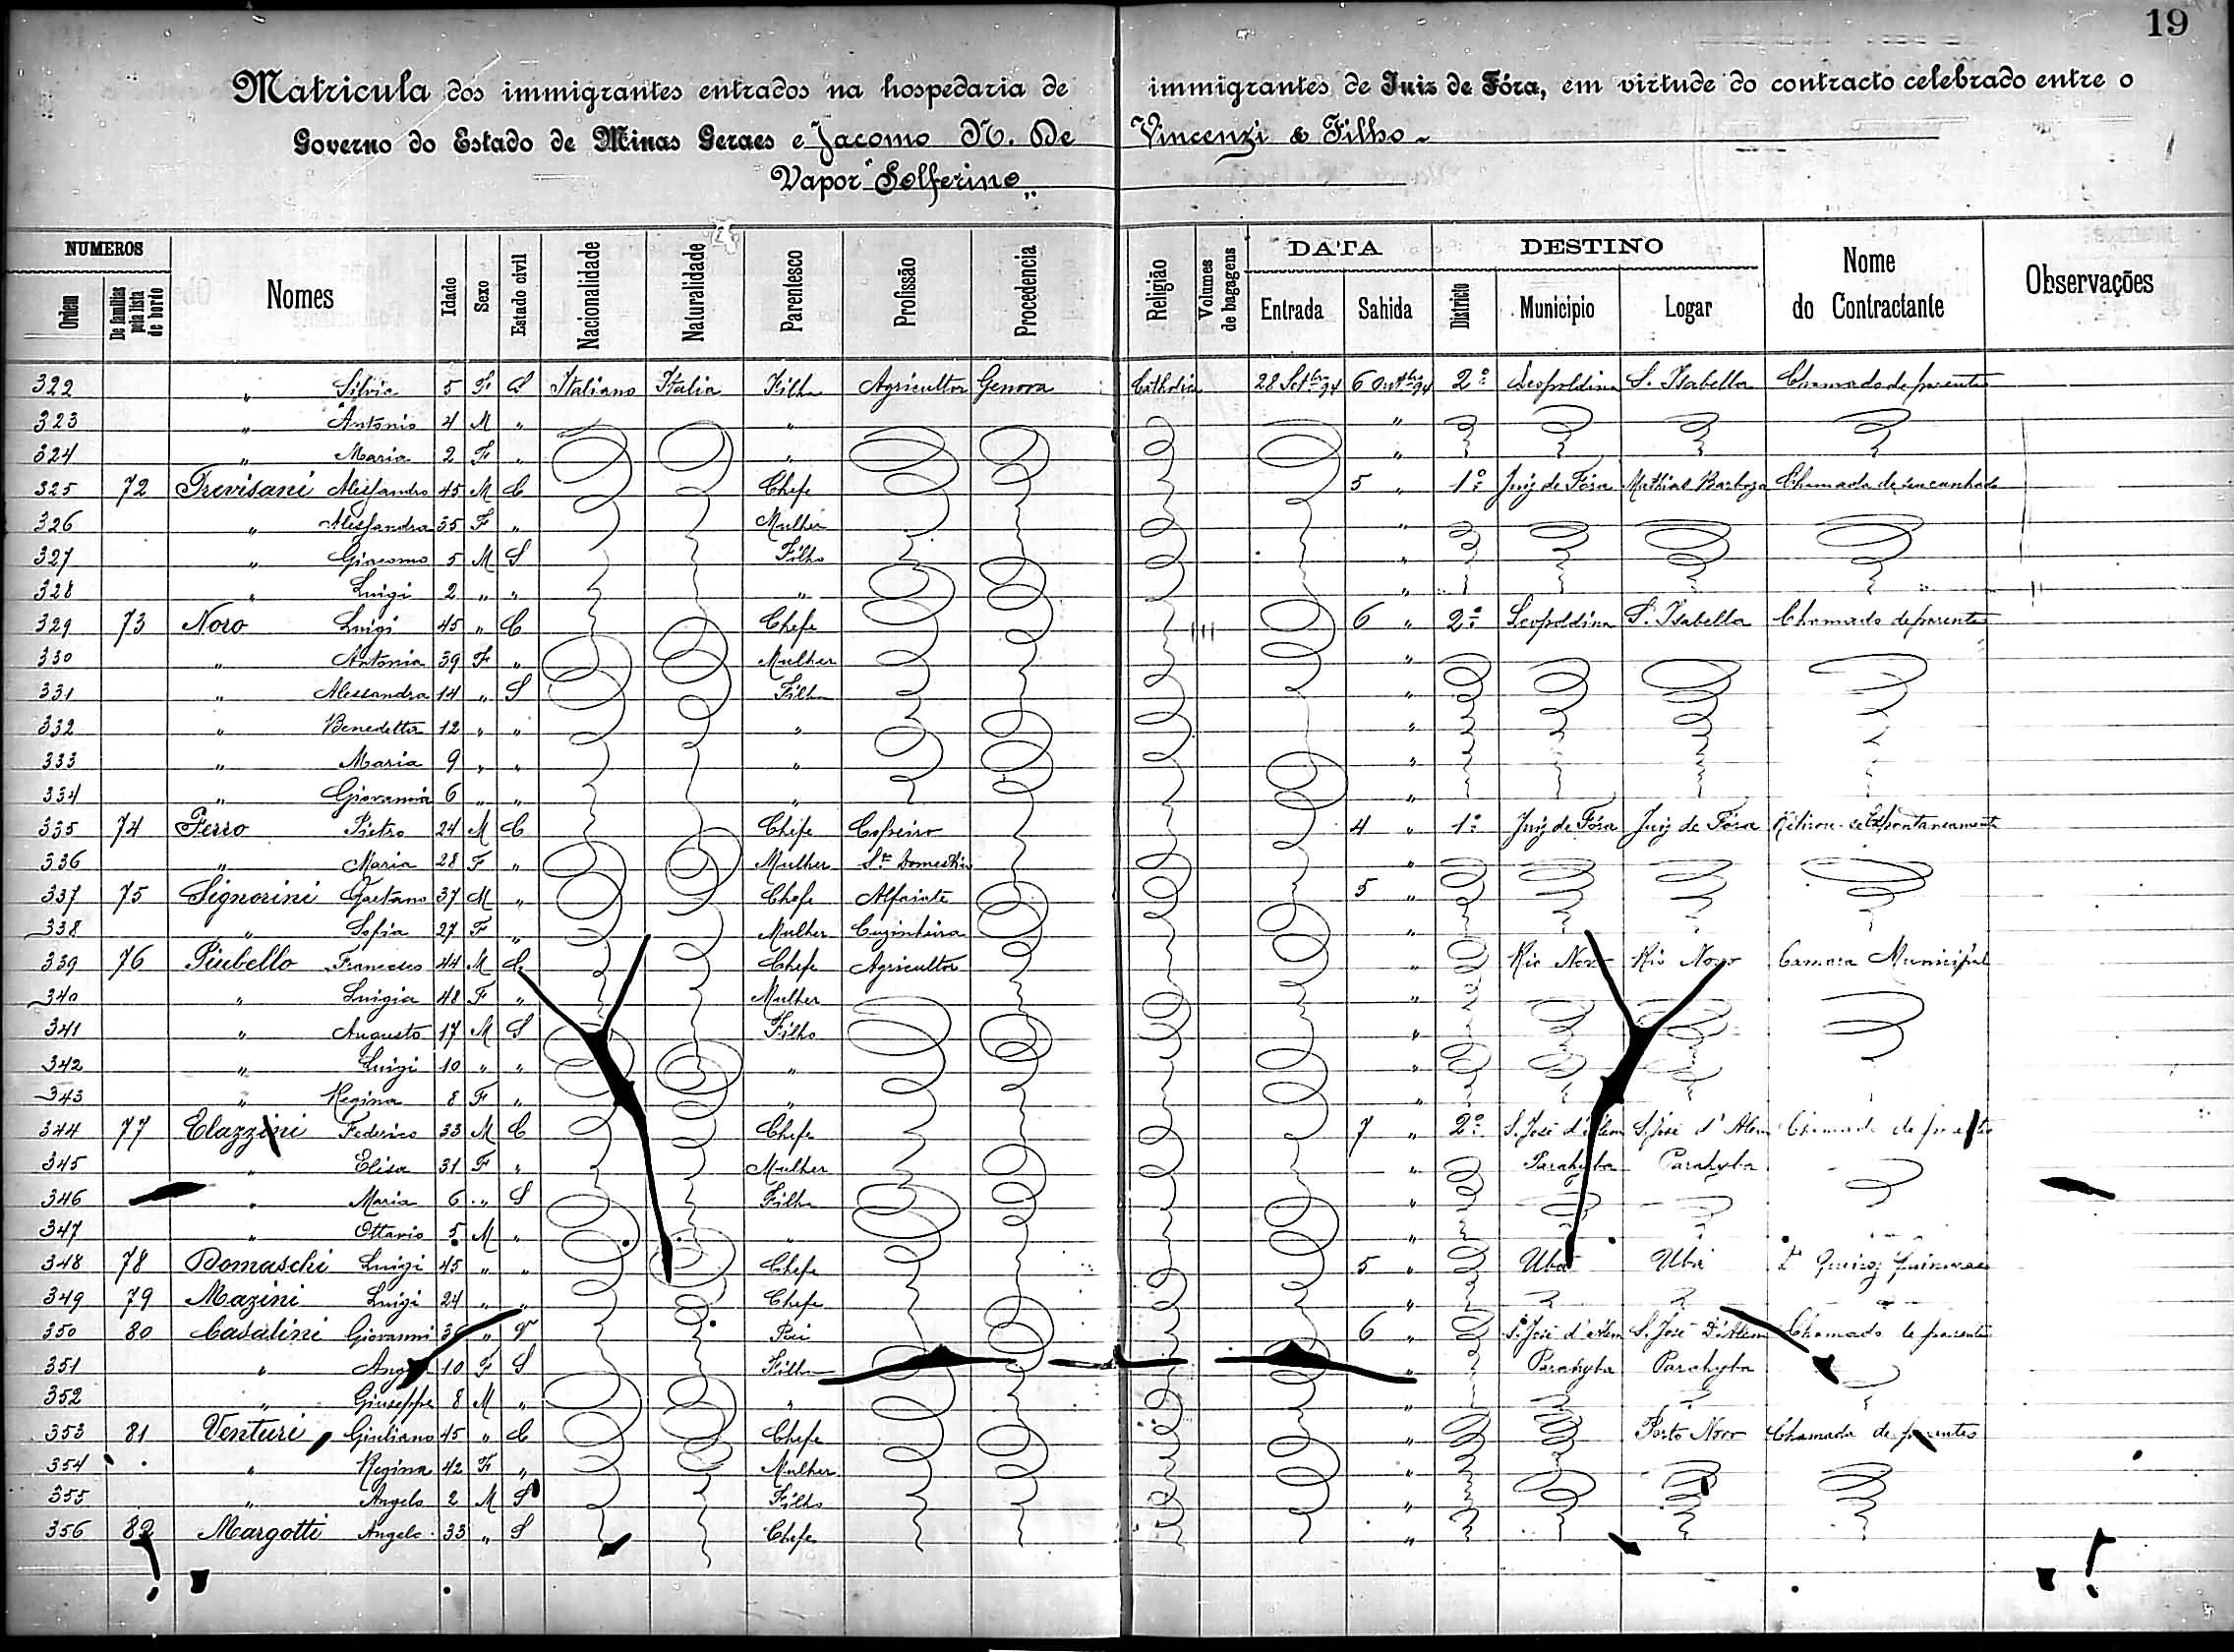 19
Matricula dos immigrantes entrados na hospedaria de immigrantes de Juiz de Fóra, em virtude do contracto celebrado entre o
Governo do Estado de Minas Geraes e Jacomo N. De Vincenzi & Filho
Vapor "Solferino"
NUMEROS DATA DESTINO
Ordem De familias pela lista de bordo Nomes Idade Sexo Estado civil Nacionalidade Naturalidade Parentesco Profissão Procedencia Religião Volumes de bagagens Entrada Sahida Districto Municipio Logar Nome do Contractante Observações
322 " Silvia 5 F S Italiano Italia Filha Agricultor Genova Catholica 28 Setbro 94 6 Outbro 94 2º Leopoldina S. Isabella Chamado de parentes
323 " Antonio 4 M " " "
324 " Maria 2 F " " "
325 72 Trevisani Alessandro 45 M C Chefe 5 " 1º Juiz de Fóra Mathias Barboza Chamado de seu cunhado
326 " Alessandra 35 F " Mulher "
327 " Giacomo 5 M S Filho "
328 " Luigi 2 " " " "
329 73 Noro Luigi 45 " C Chefe 6 " 2º Leopoldina S. Isabella Chamado de parentes
330 " Antonia 39 F " Mulher "
331 " Alessandra 14 " S Filha "
332 " Benedetta 12 " " " "
333 " Maria 9 " " " "
334 " Giovanna 6 " " " "
335 74 Ferro Pietro 24 M C Chefe Copeiro 4 " 1º Juiz de Fóra Juiz de Fóra Retirou-se espontaneamente
336 " Maria 28 F " Mulher Sº Domestico "
337 75 Signorini Gaetano 37 M " Chefe Alfaiate 5 "
338 " Sofia 27 F " Mulher Cuzinheira "
339 76 Piubello Francesco 44 M C Chefe Agricultor " Rio Novo Rio Novo Camara Municipal
340 " Luigia 48 F " Mulher "
341 " Augusto 17 M S Filho "
342 " Luigi 10 " " " "
343 " Regina 8 F " " "
344 77 Elazzini Federico 33 M C Chefe 7 " 2º S. José d'Alem S. José d'Alem Chamado de parentes
345 " Elisa 31 F " Mulher " Parahyba Parahyba
346 " Maria 6 " S Filha "
347 " Ottavio 5 M " " "
348 78 Domaschi Luigi 45 " " Chefe 5 " Ubá Ubá
349 79 Mazini Luigi 24 " " Chefe "
350 80 Casalini Giovanni " Pai 6 " S. José d'Alem S. José D'Alem Chamado de parentes
351 " 10 F S Filha " Parahyba Parahyba
352 " Giuseppe 8 M " " "
353 81 Venturi Giuliano 45 " C Chefe " Porto Novo Chamado de parentes
354 " Regina 42 F " Mulher "
355 " Angelo 2 M S Filho "
356 82 Margotti Angelo 33 " S Chefe "